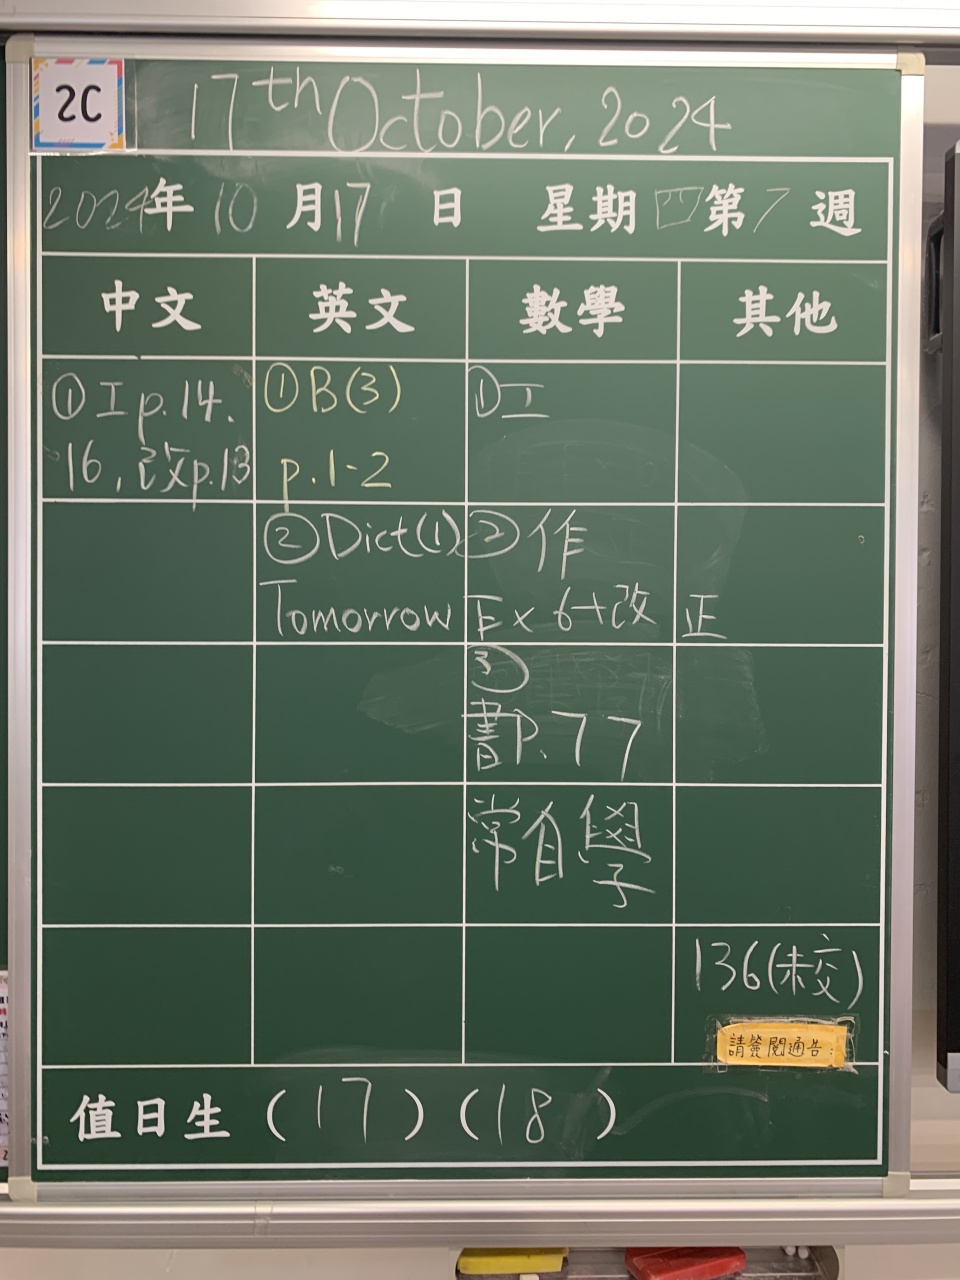 2C
17th October, 2024
2024年10月17日 星期四第7週
中文 英文 數學 其他
①工p.14.
16,改p.13
①B(3)
p.1-2
①工
②Dict(1)
Tomorrow
②作
Ex 6+改正
③
書P.77
常自學
136(未交)
請簽閱通告:
值日生(17)(18)